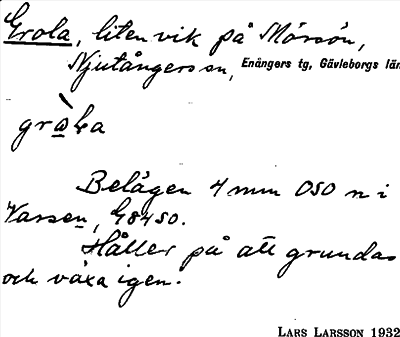 Grola, liten vik på Mörsön,
Njutångers sn, Enångers tg, Gävleborgs län
Belägen 4 mm OSO n i
Varsen, G84SO.
Håller på att grundas
och växa igen.
LARS LARSSON 1932